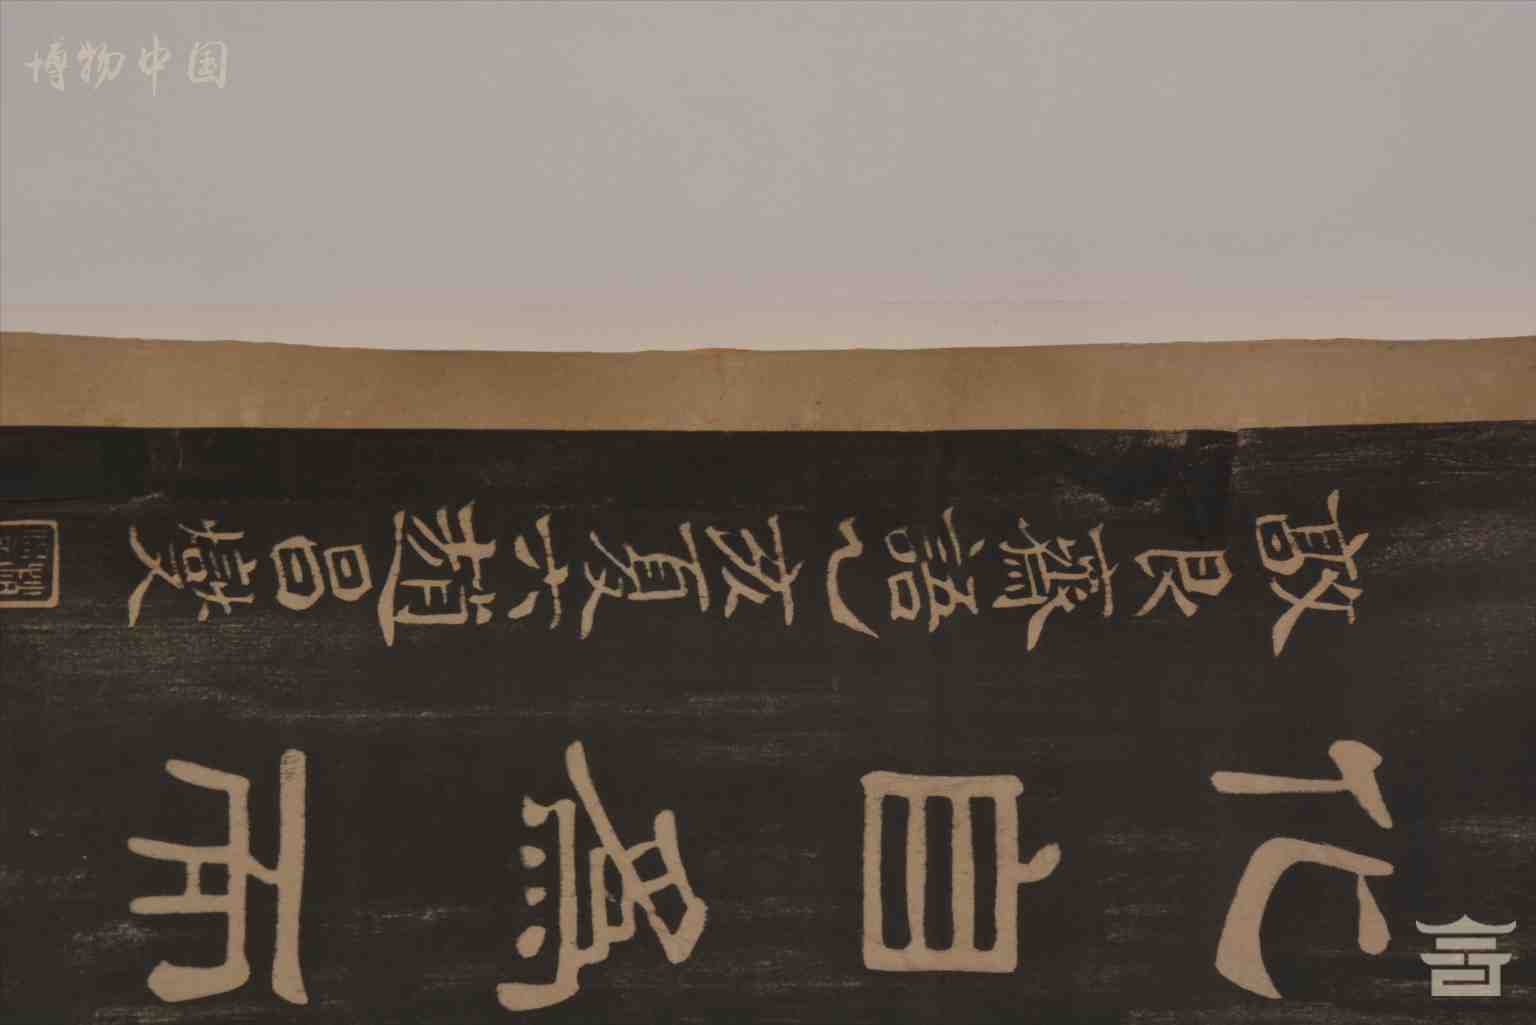 博物中国
化自為而
敦良齋語乙亥夏六趙昌燮